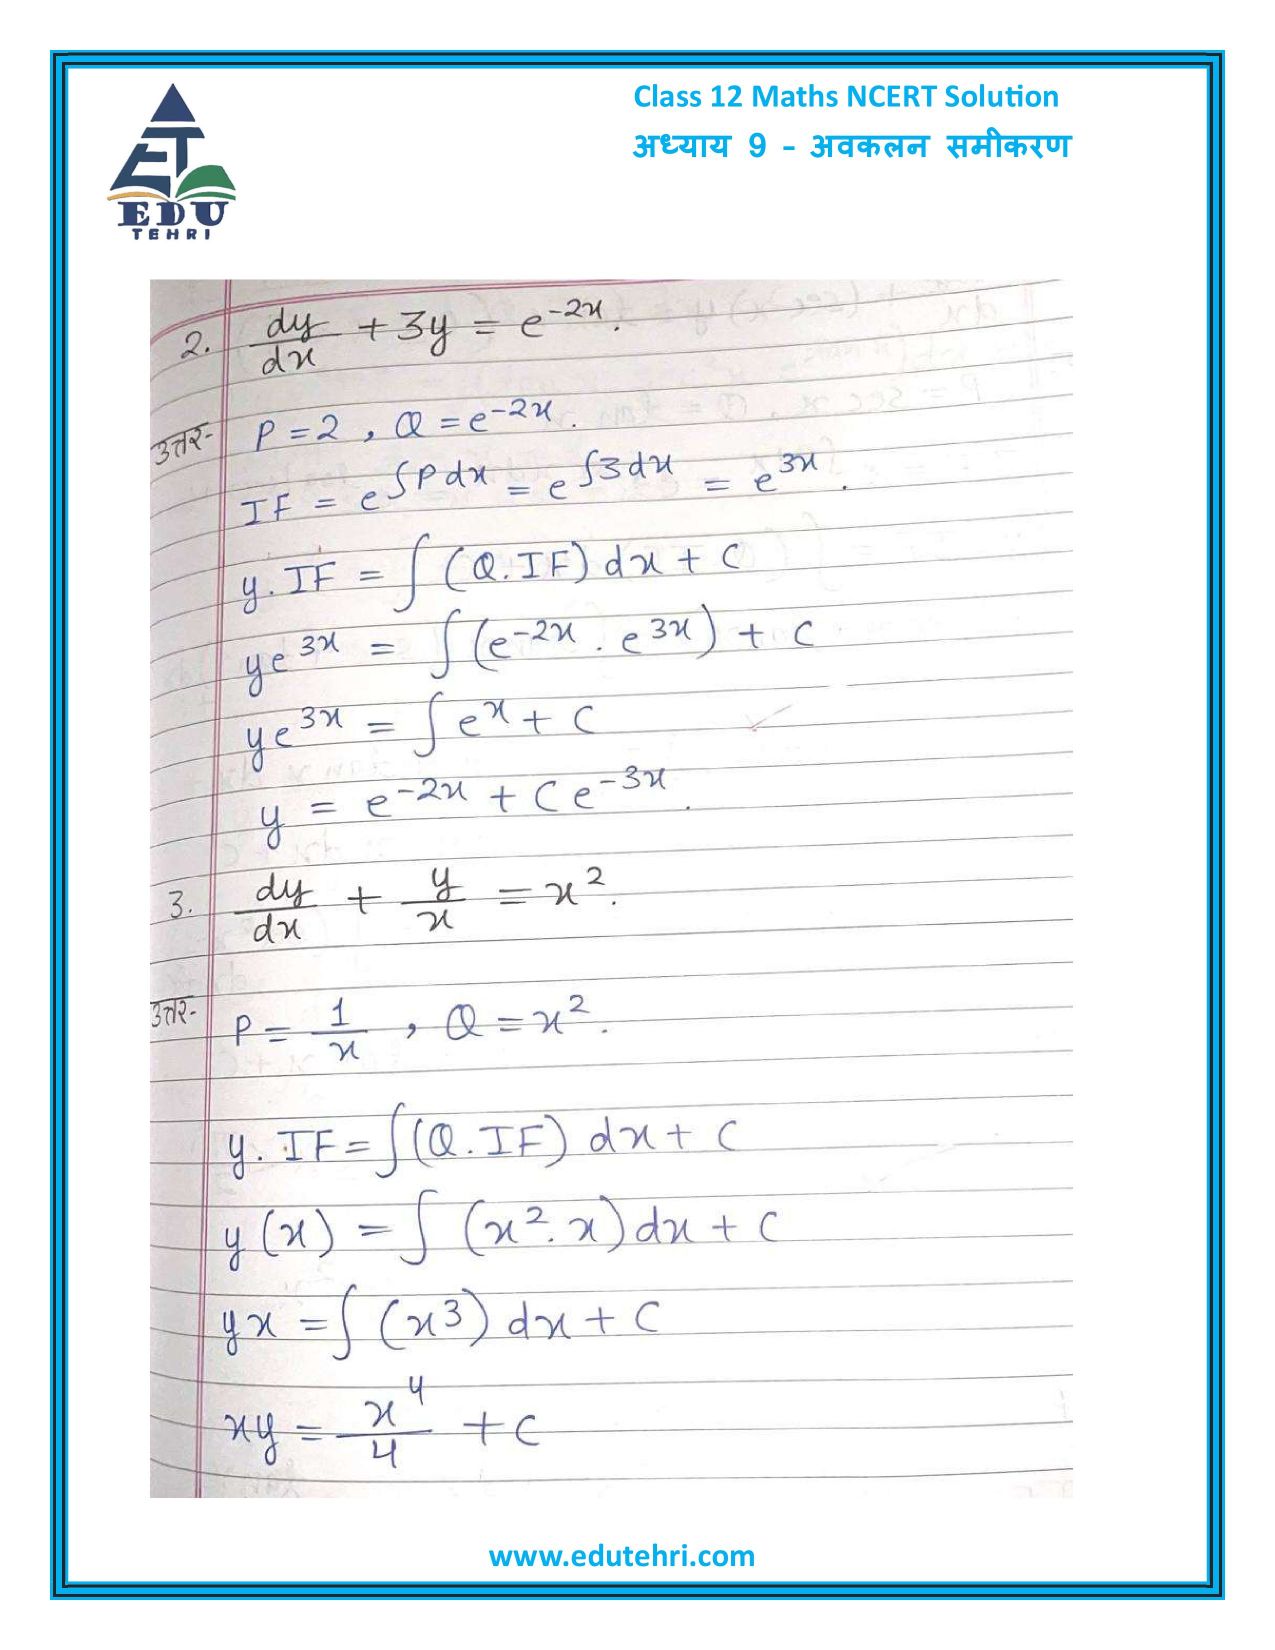 Class 12 Maths NCERT Solution
अध्याय 9 - अवकलन समीकरण
EDU
TEHRI
2. dy/dx + 3y = e^-2x.
उत्तर- P = 2 , Q = e^-2x.
IF = e^∫Pdx = e^∫3dx = e^3x.
y. IF = ∫(Q.IF) dx + C
ye^3x = ∫(e^-2x . e^3x) + C
ye^3x = ∫e^x + C
y = e^-2x + Ce^-3x.
3. dy/dx + y/x = x^2.
उत्तर- P = 1/x , Q = x^2.
y. IF = ∫(Q.IF) dx + C
y(x) = ∫(x^2. x) dx + C
yx = ∫(x^3) dx + C
xy = x^4/4 + C
www.edutehri.com